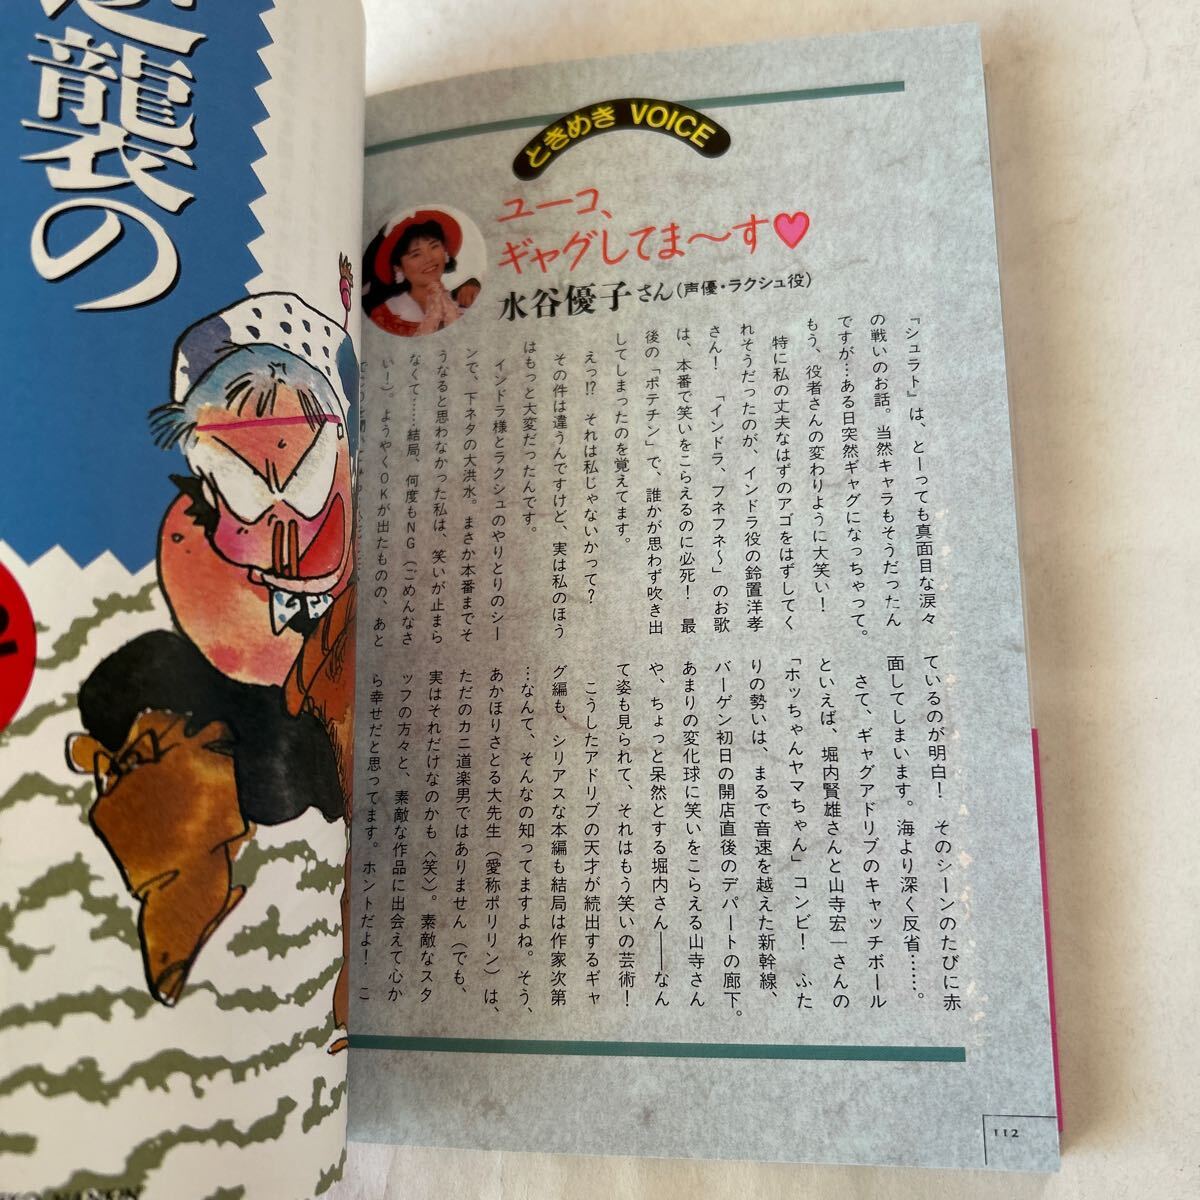 逆襲の
ときめき VOICE
ユーコ、
ギャグしてま〜す♥
水谷優子さん(声優・ラクシュ役)
「シュラト」は、とーっても真面目な涙々
の戦いのお話。当然キャラもそうだったん
ですが…ある日突然ギャグになっちゃって。
もう、役者さんの変わりように大笑い!
特に私の丈夫なはずのアゴをはずしてく
れそうだったのが、インドラ役の鈴置洋孝
さん! 「インドラ、フネフネ〜」のお歌
は、本番で笑いをこらえるのに必死! 最
後の「ポテチン」で、誰かが思わず吹き出
してしまったのを覚えてます。
えっ!? それは私じゃないかって?
その件は違うんですけど、実は私のほう
はもっと大変だったんです。
インドラ様とラクシュのやりとりのシー
ンで、下ネタの大洪水。まさか本番までそ
うなると思わなかった私は、笑いが止まら
なくて……結局、何度もNG(ごめんなさ
いー!)。ようやくOKが出たものの、あと
ているのが明白! そのシーンのたびに赤
面してしまいます。海より深く反省……。
さて、ギャグアドリブのキャッチボール
といえば、堀内賢雄さんと山寺宏一さんの
「ホッちゃんヤマちゃん」コンビ! ふた
りの勢いは、まるで音速を越えた新幹線、
バーゲン初日の開店直後のデパートの廊下。
あまりの変化球に笑いをこらえる山寺さん
や、ちょっと呆然とする堀内さん――なん
て姿も見られて、それはもう笑いの芸術!
こうしたアドリブの天才が続出するギャ
グ編も、シリアスな本編も結局は作家次第
…なんて、そんなの知ってますよね。そう、
あかほりさとる大先生(愛称ポリリン)は、
ただのカニ道楽男ではありません(でも、
実はそれだけなのかも〈笑〉)。素敵なスタ
ッフの方々と、素敵な作品に出会えて心か
ら幸せだと思ってます。ホントだよ! こ
112